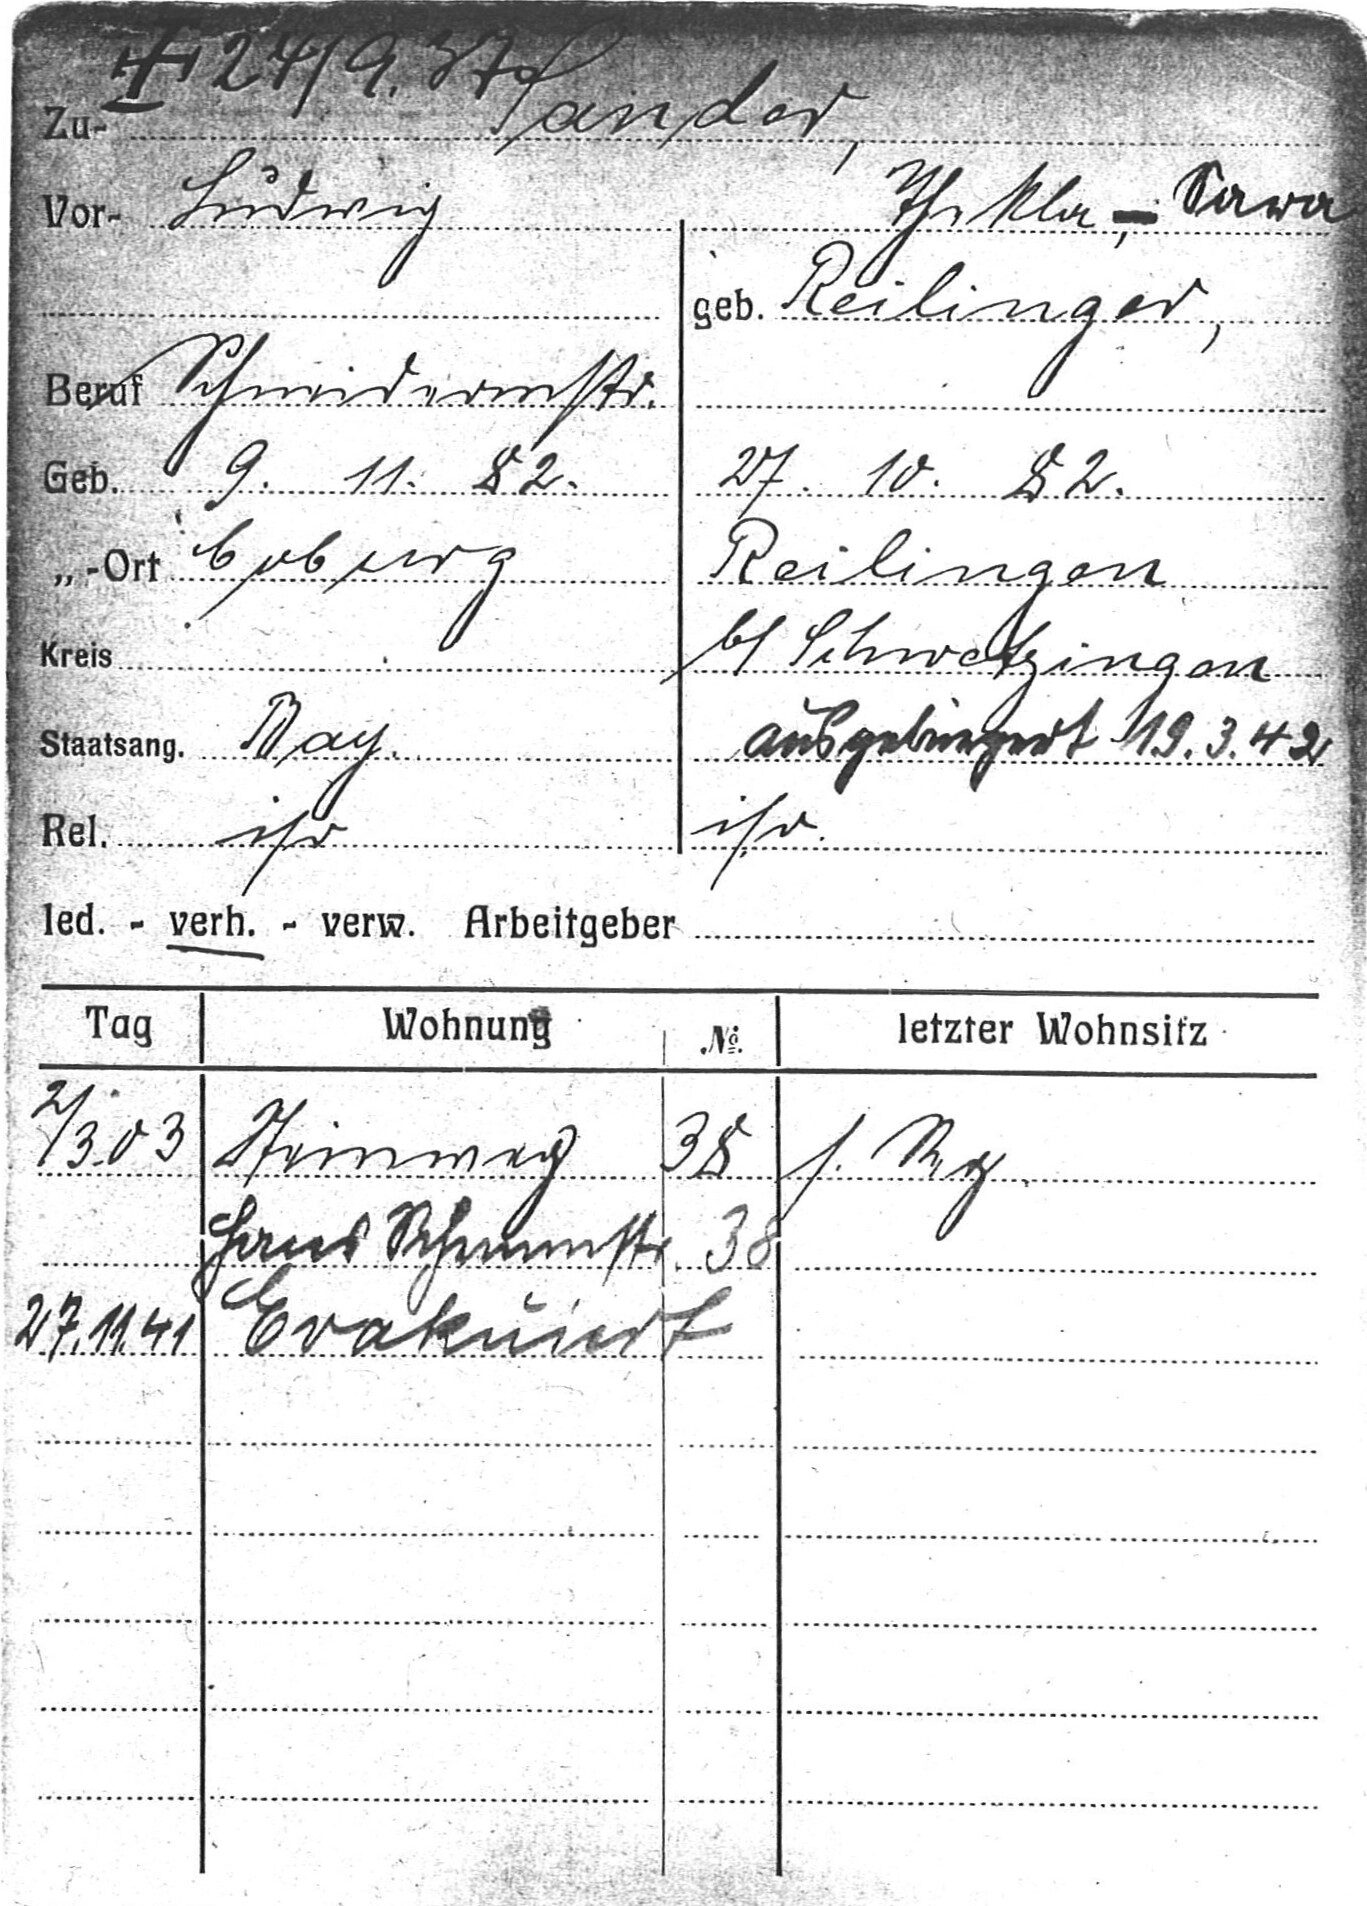 † 24/9.37
Zu- Sander,
Vor- Ludwig Thekla, - Sara
geb. Reilinger,
Beruf Schneidermstr.
Geb. 9. 11. 82. 27. 10. 82.
„-Ort Coburg Reilingen
Kreis b/ Schwetzingen
Staatsang. Bay. ausgebürgert 19.3.42
Rel. isr isr.
led. - verh. - verw. Arbeitgeber
Tag Wohnung № letzter Wohnsitz
2/3.03 Steinweg 38 f.
Hans Schemmstr. 38
27.11.41 Evakuiert